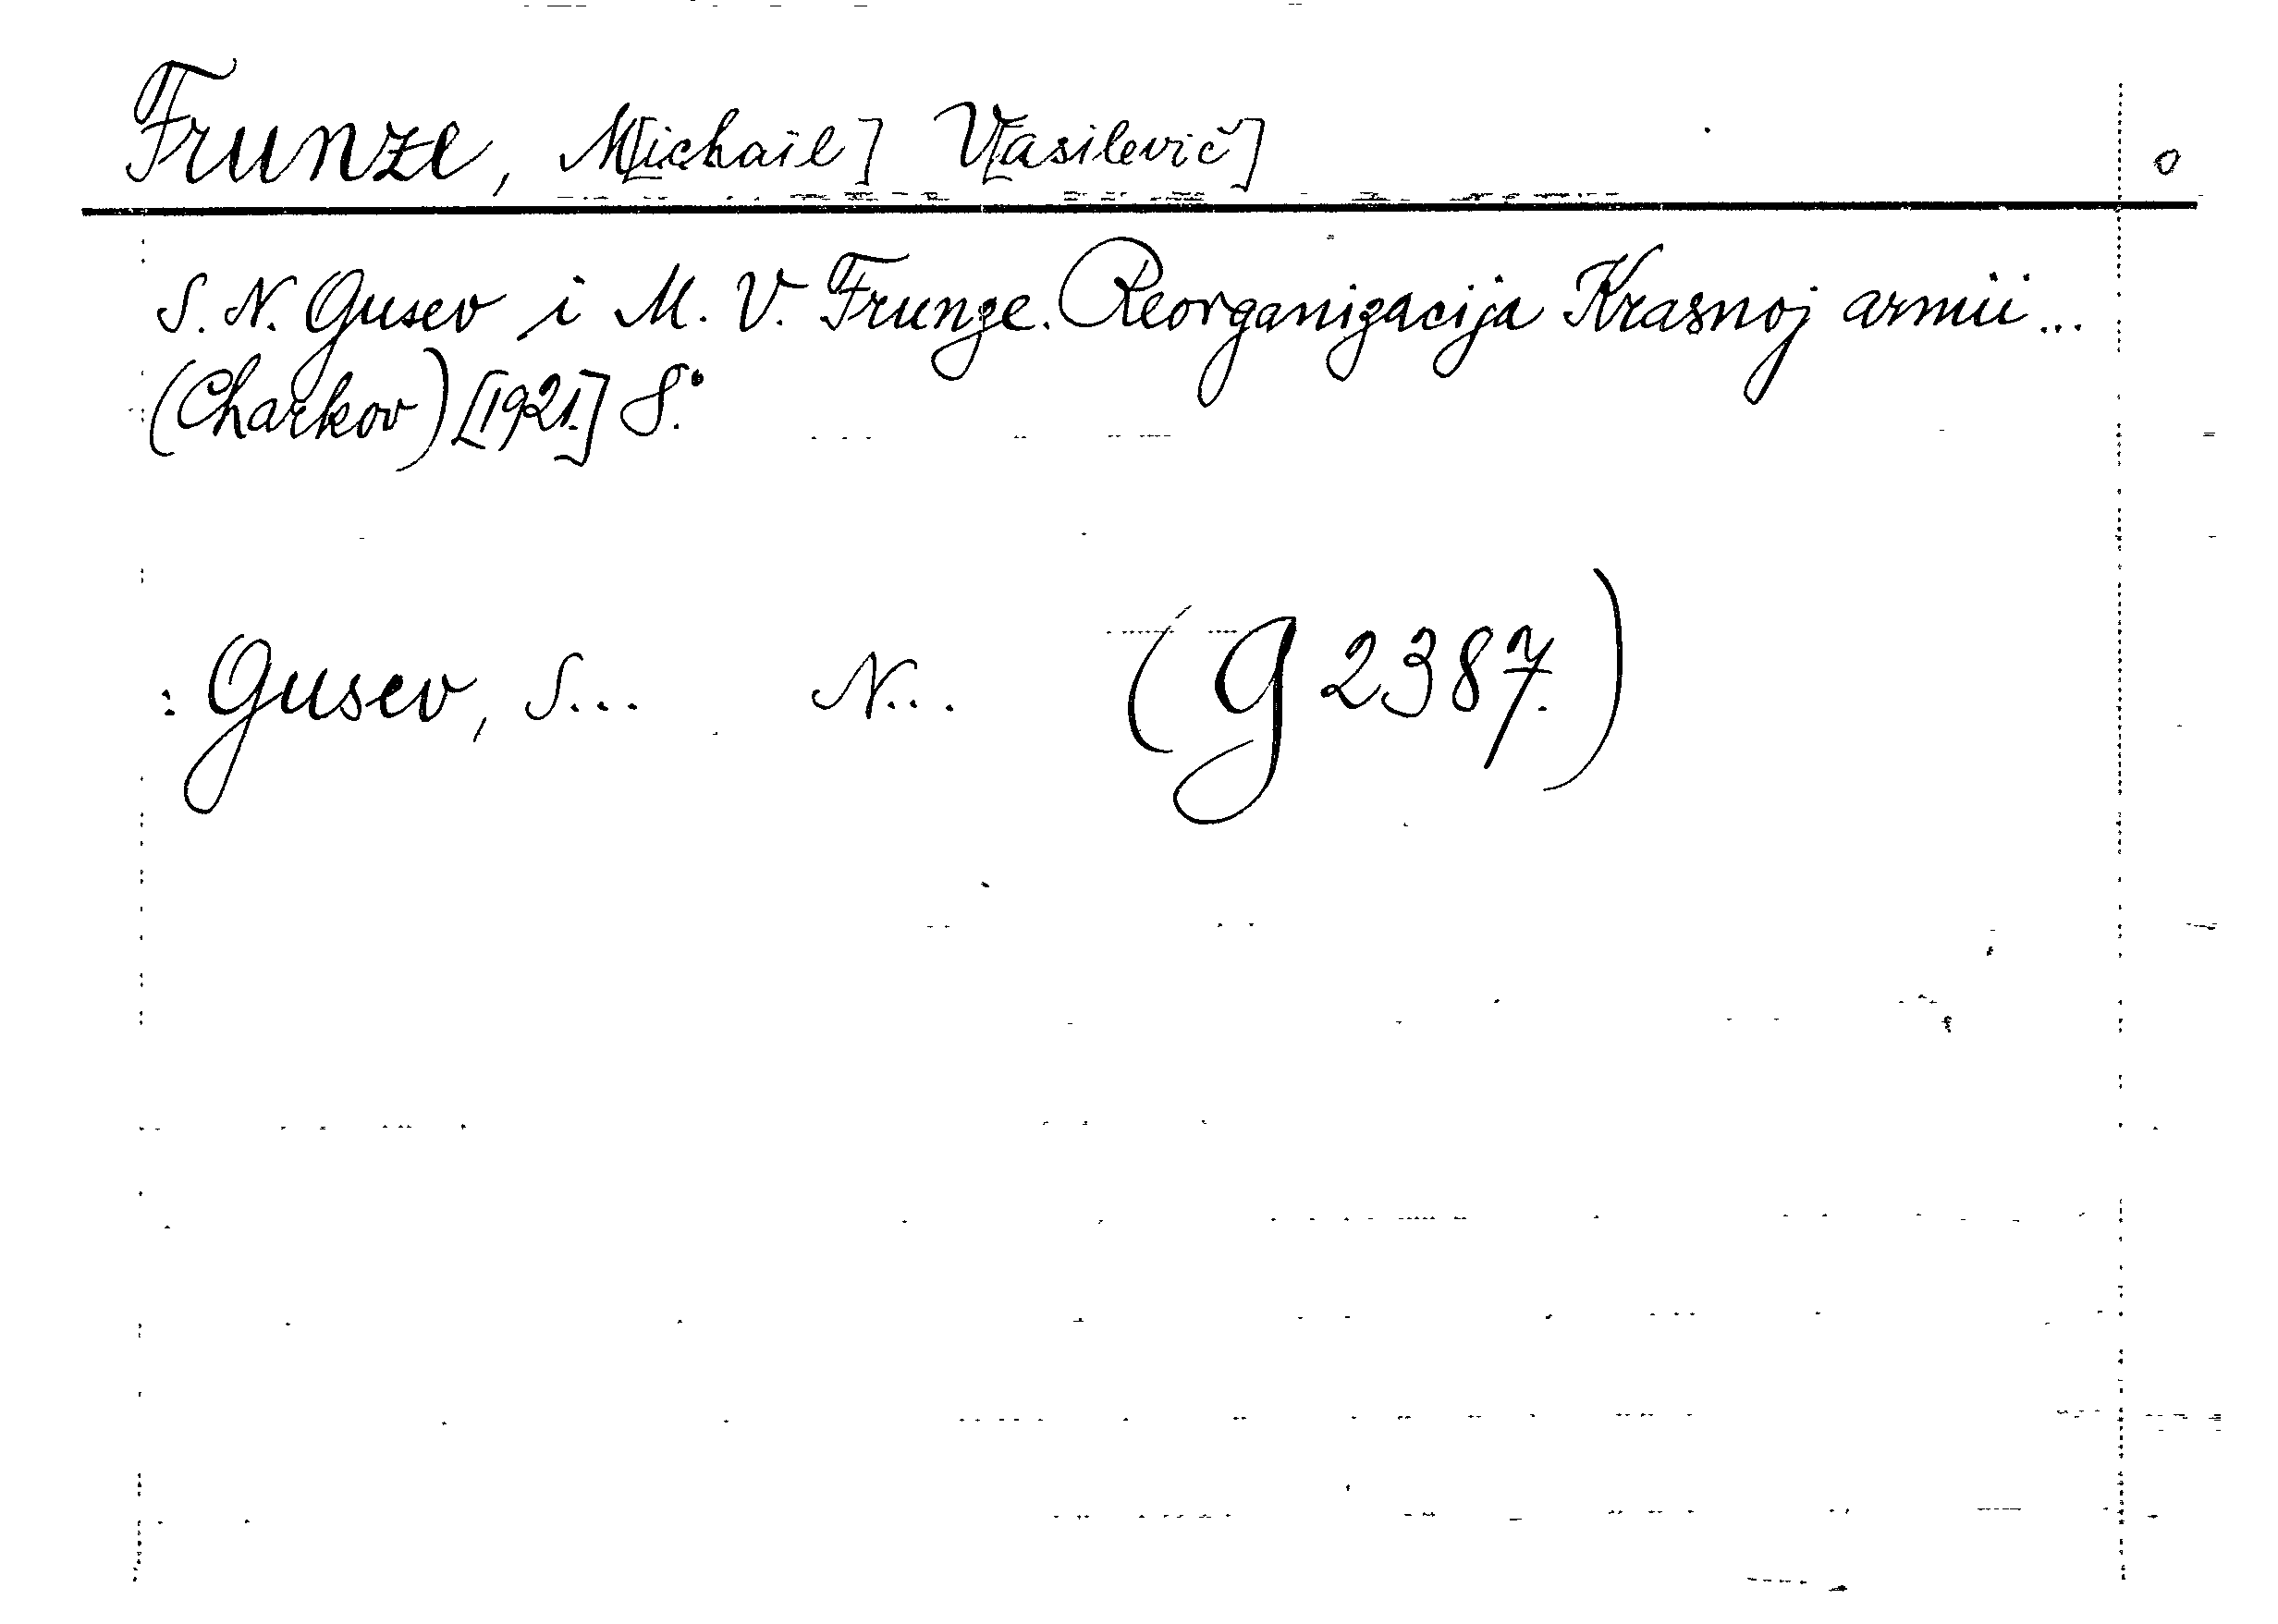 Frunze, M[ichail] V[asilevič] o
S. N. Gusev i M. V. Frunze. Reorganizacija Krasnoj armii...
(Charkov) [1921.] 8.°
: Gusev, S... N... (G 2387.)